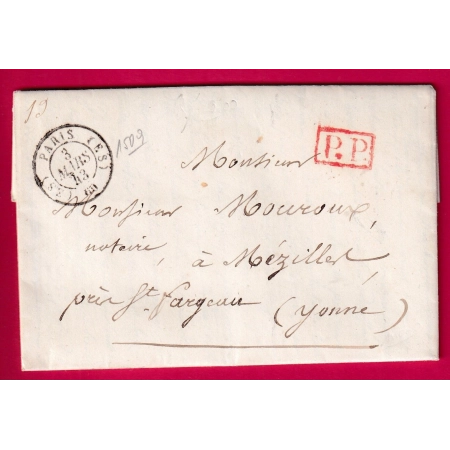 13
PARIS (ES)
3
MARS
63
(60)
1509
P.P.
Monsieur
Monsieur Mouroux,
notaire, à Mézilles,
près St. Fargeau (Yonne)